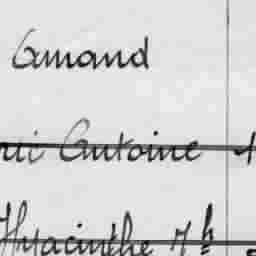 Amand
Antoine
Hyacinthe 7h